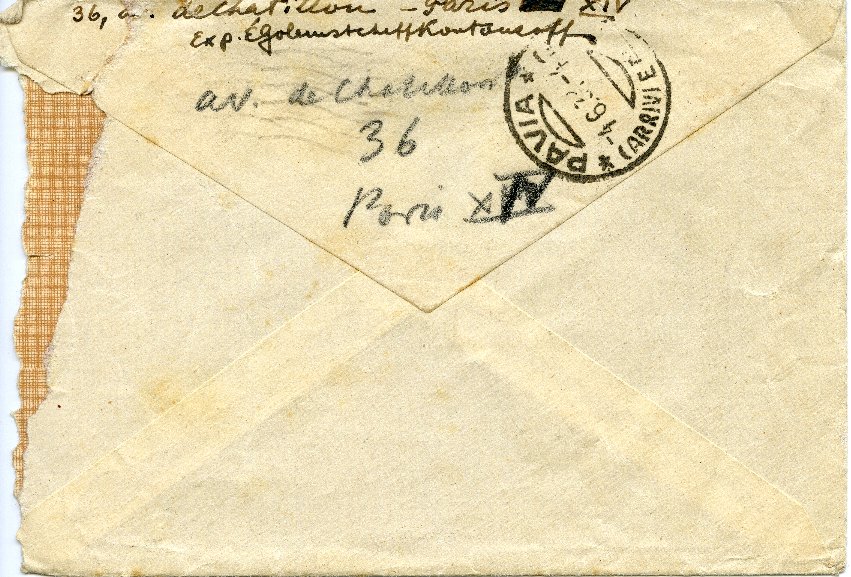 36, av. de Chatillon - Paris XIV
Exp. E. Golenistcheff Koutousoff
av. de Chatillon
36
Paris XIV
* PAVIA * (ARRIVI E